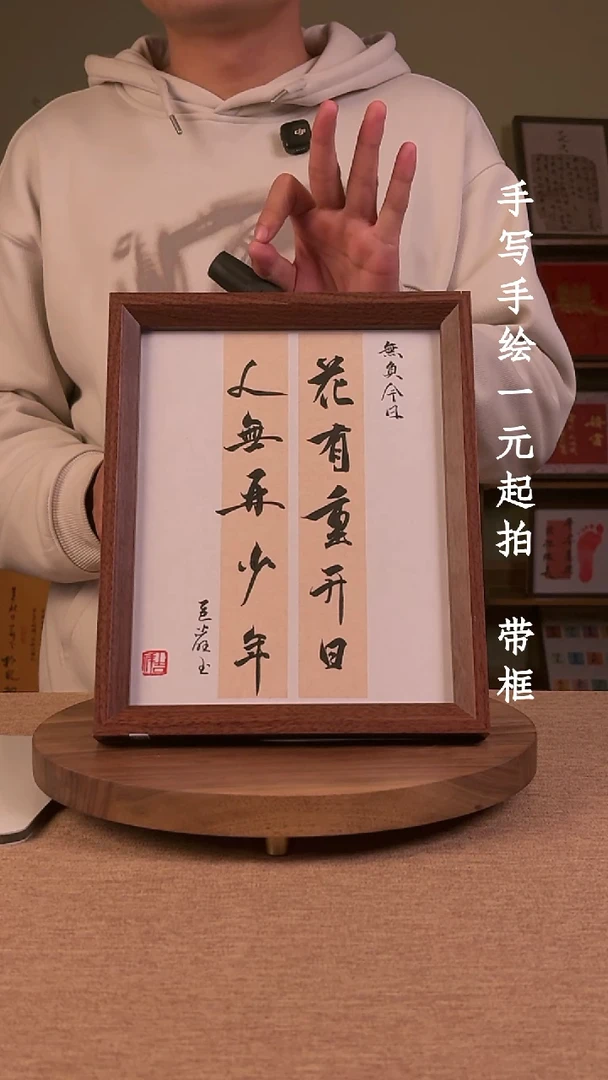 無負今日
花有重開日
人無再少年
手写手绘一元起拍 带框